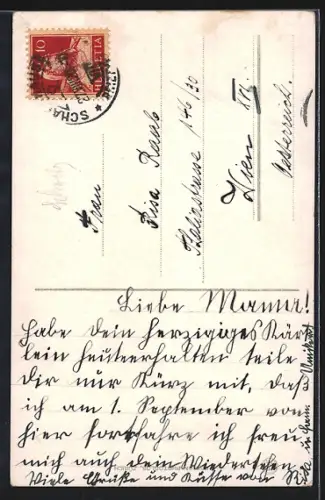 10
HELVETIA
Frau
Risa Raab
Thaliastrasse 146/30
Wien XVI.
Oesterreich.
Liebe Mama!
Habe Dein herzigiges Kärt
lein heuteerhalten teile
Dir nur Kürz mit, daß
ich am 1. September von
hier fortfahre ich freu
mich auch dem Wiedersehen.
Viele Grüße und Küsse von